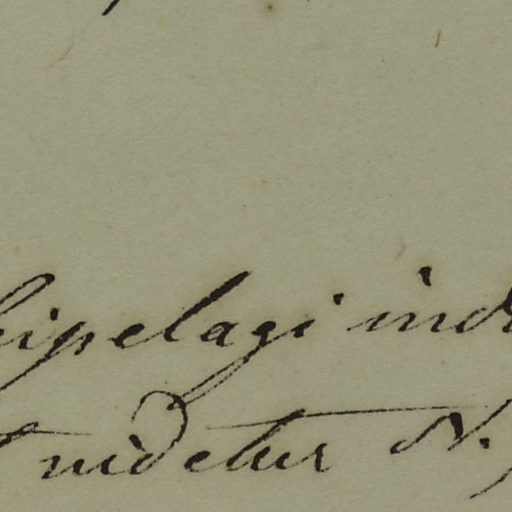 hipelagi ind
t videtur N.